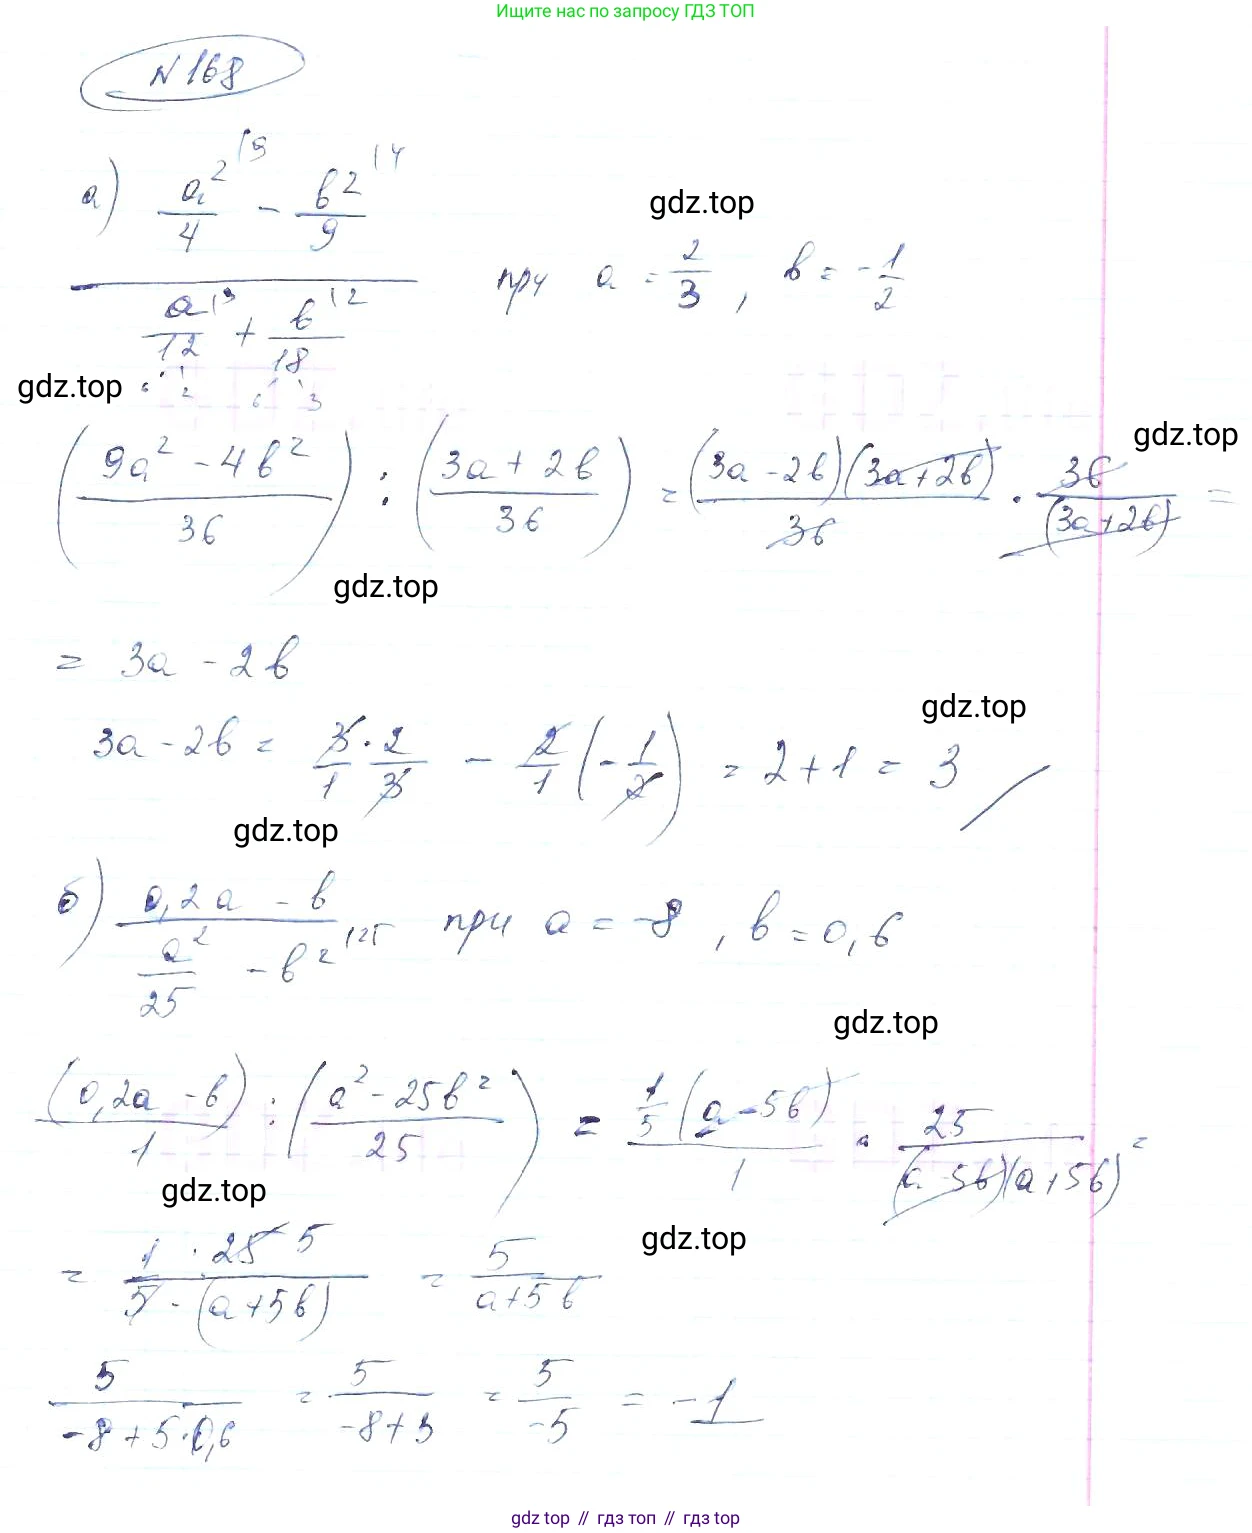 Ищите нас по запросу ГДЗ ТОП
N 168
а) (a²/4 |9 - b²/9 |4) / (a/12 |3 + b/18 |2) при a = 2/3, b = -1/2
gdz.top
6 2 6 3
gdz.top
((9a² - 4b²)/36) : ((3a + 2b)/36) = (3a - 2b)(3a + 2b)/36 · 36/(3a + 2b) =
gdz.top
gdz.top
= 3a - 2b
gdz.top
3a - 2b = 3/1 · 2/3 - 2/1 (-1/2) = 2 + 1 = 3
gdz.top
б) (0,2a - b) / (a²/25 - b² |25) при a = -8, b = 0,6
gdz.top
(0,2a - b)/1 : ((a² - 25b²)/25) = 1/5 (a - 5b)/1 · 25/((a - 5b)(a + 5b)) =
gdz.top
gdz.top
= 1 · 25 5/(5 · (a + 5b)) = 5/(a + 5b)
5/(-8 + 5·0,6) = 5/(-8 + 3) = 5/-5 = -1
gdz.top // гдз топ // гдз top